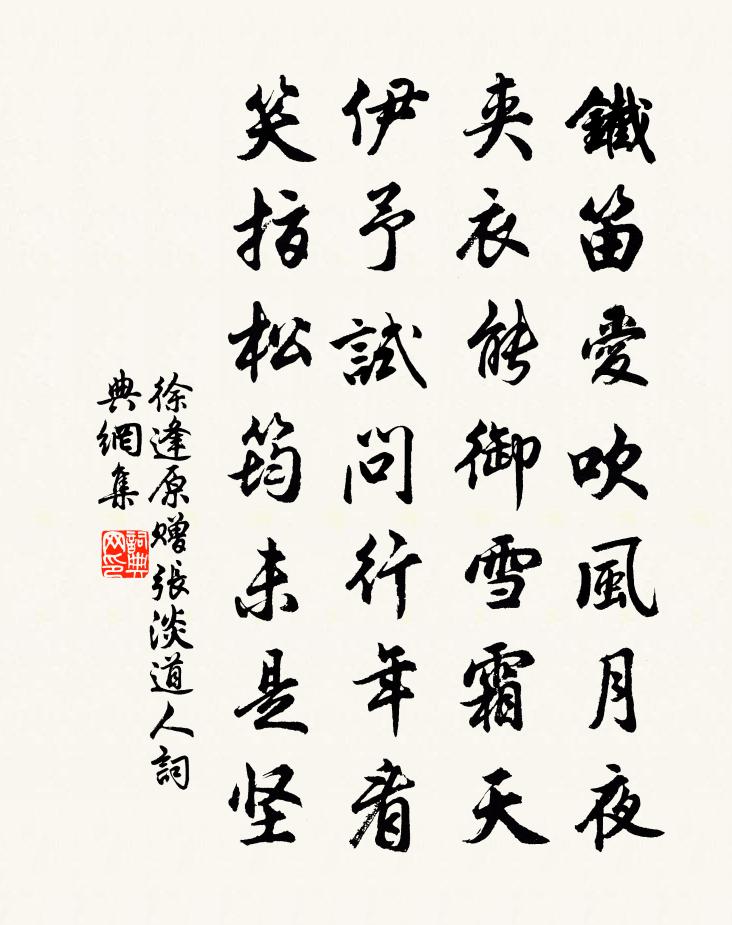 鐵笛愛吹風月夜
夾衣能御雪霜天
伊予試問行年看
笑指松筠未是坚
徐逢原贈張淡道人詞
典網集
詞典网印